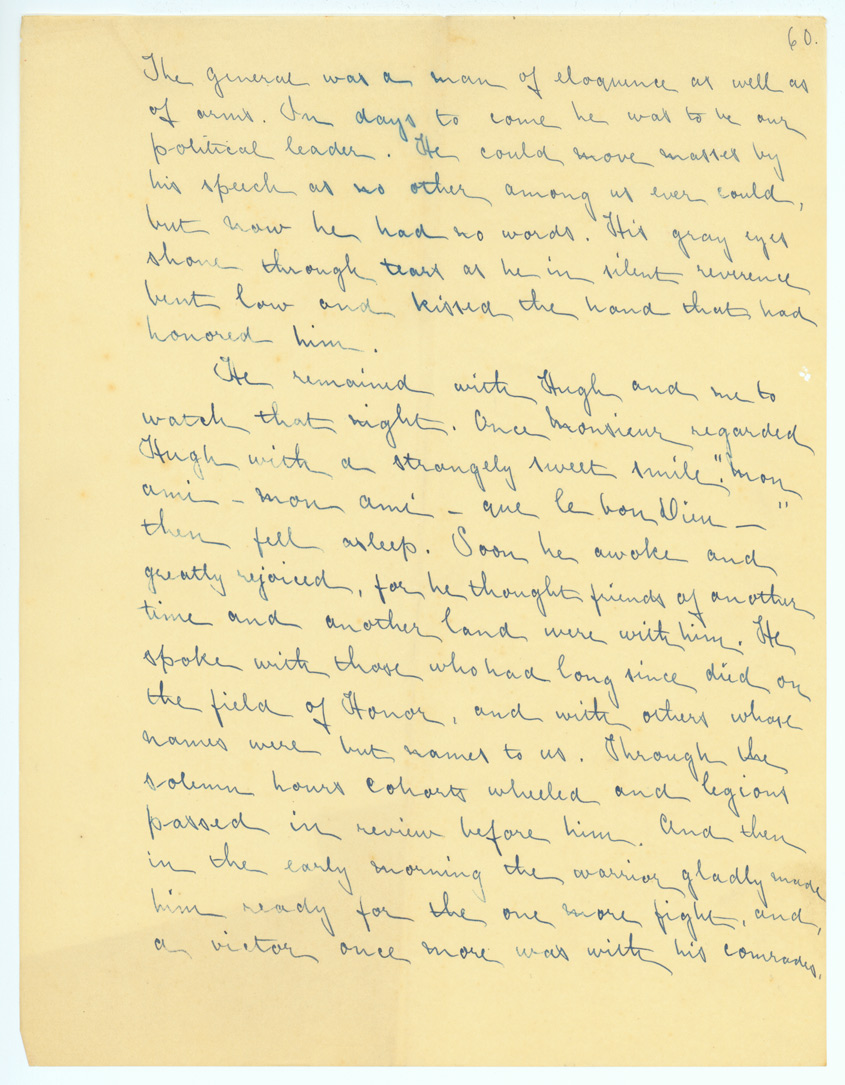 60.
The general was a man of eloquence as well as
of arms. In days to come he was to be our
political leader. He could move masses by
his speech as no other among us ever could,
but now he had no words. His gray eyes
shone through tears as he in silent reverence
bent low and kissed the hand that had
honored him.
He remained with Hugh and me to
watch that night. Once Monsieur regarded
Hugh with a strangely sweet smile. "Mon
ami – mon ami – que le bon Dieu – "
then fell asleep. Soon he awoke and
greatly rejoiced, for he thought friends of another
time and another land were with him. He
spoke with those who had long since died on
the field of Honor, and with others whose
names were but names to us. Through the
solemn hours cohorts wheeled and legions
passed in review before him. And then
in the early morning the warrior gladly made
him ready for the one more fight, and,
a victor once more was with his comrades.